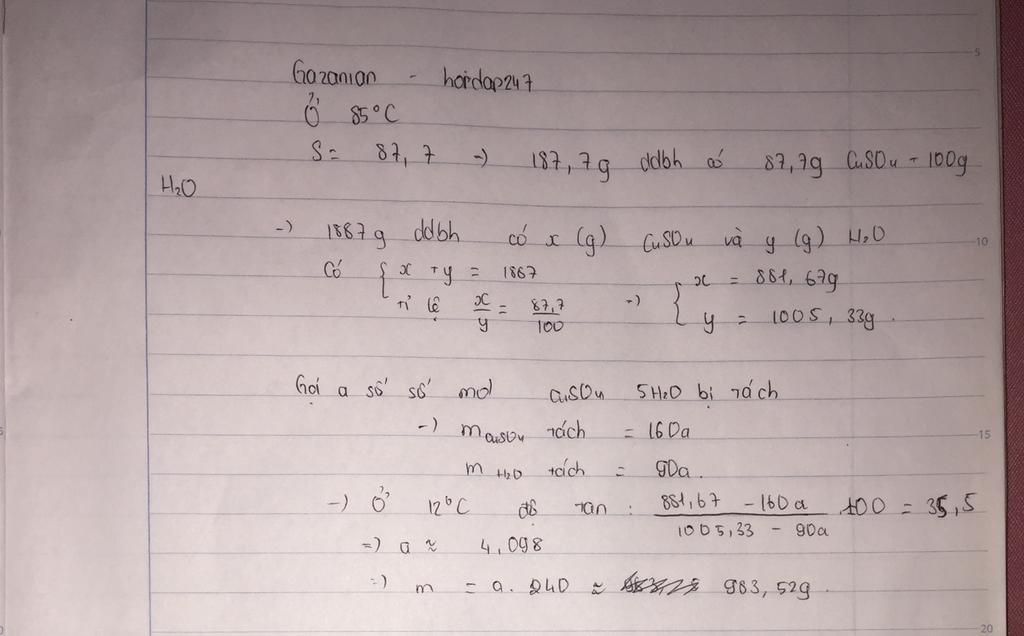 Gazanian - hoidap247
Ở 85°C
S = 87,7 -) 187,7g ddbh có 87,7g CuSO4 - 100g
H2O
-) 1887g ddbh có x (g) CuSO4 và y (g) H2O
Có { x + y = 1887
Tỉ lệ x/y = 87,7/100 -) { x = 881,67g
y = 1005,33g.
Gọi a số số mol CuSO4 5H2O bị tách
-) mCuSO4 tách = 160a
mH2O tách = 90a.
-) Ở 12°C độ tan : (881,67 - 160a)/(1005,33 - 90a) .100 = 35,5
=) a ≈ 4,098
=) m = a. 240 ≈ 983,52g.
5
10
15
20